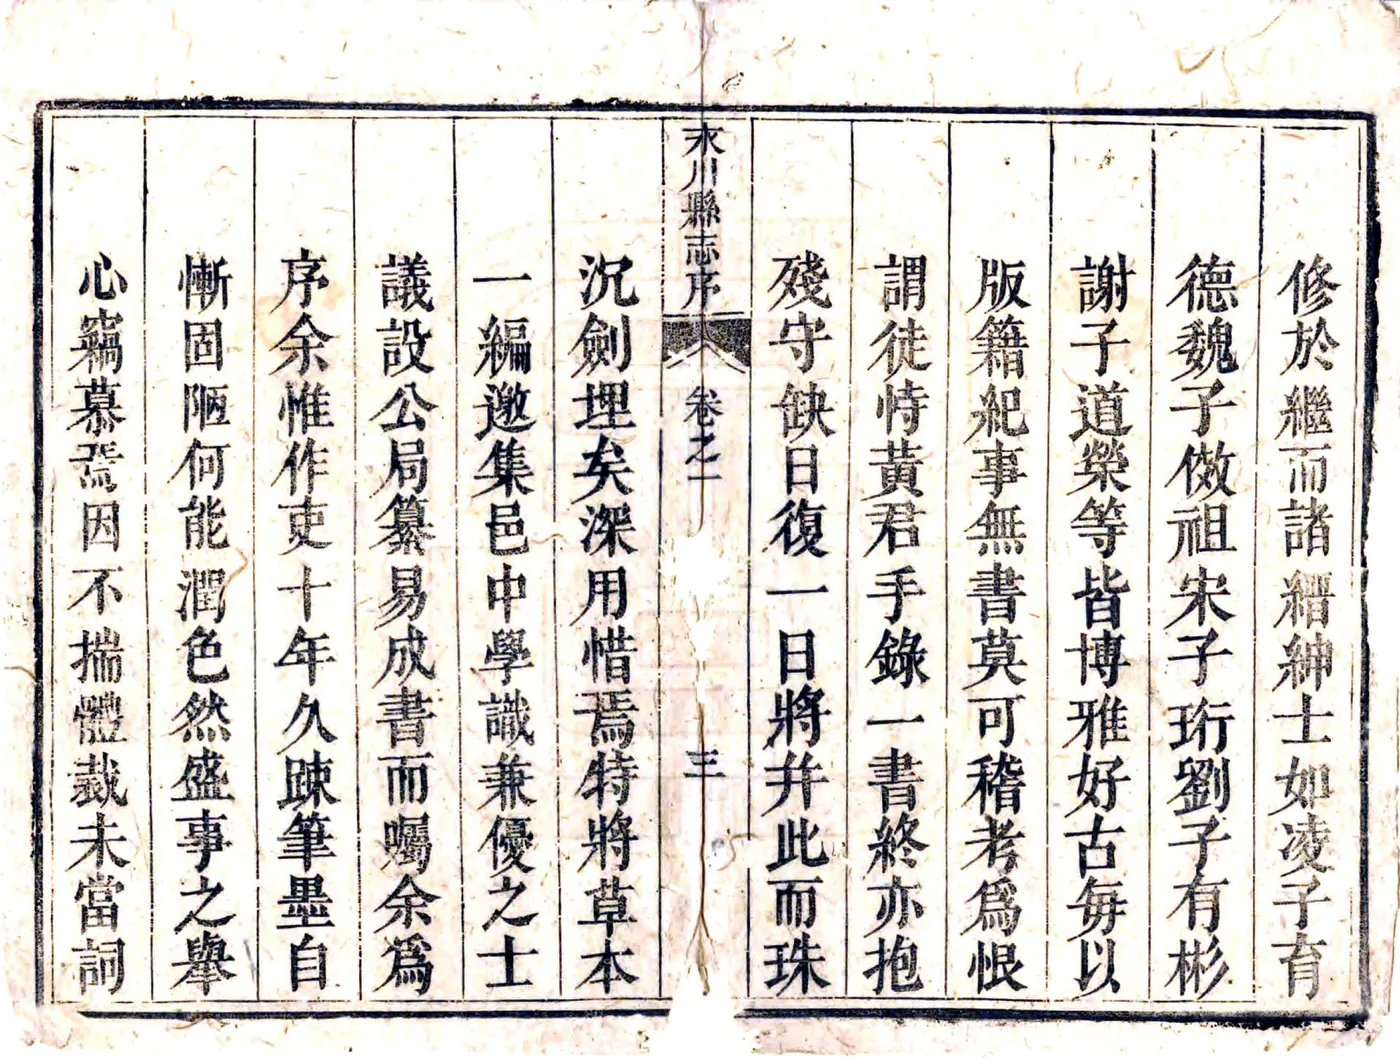 修於繼而諸縉紳士如凌子育
德魏子倣祖宋子珩劉子有彬
謝子道榮等皆博雅好古每以
版籍紀事無書莫可稽考爲恨
謂徒恃黃君手錄一書終亦抱
殘守缺日復一日將并此而珠
永川縣志序
卷之一
三
沉劍埋矣深用惜焉特將草本
一編邀集邑中學識兼優之士
議設公局纂易成書而囑余爲
序余惟作吏十年久踈筆墨自
慚固陋何能潤色然盛事之舉
心竊慕焉因不揣體裁未當詞